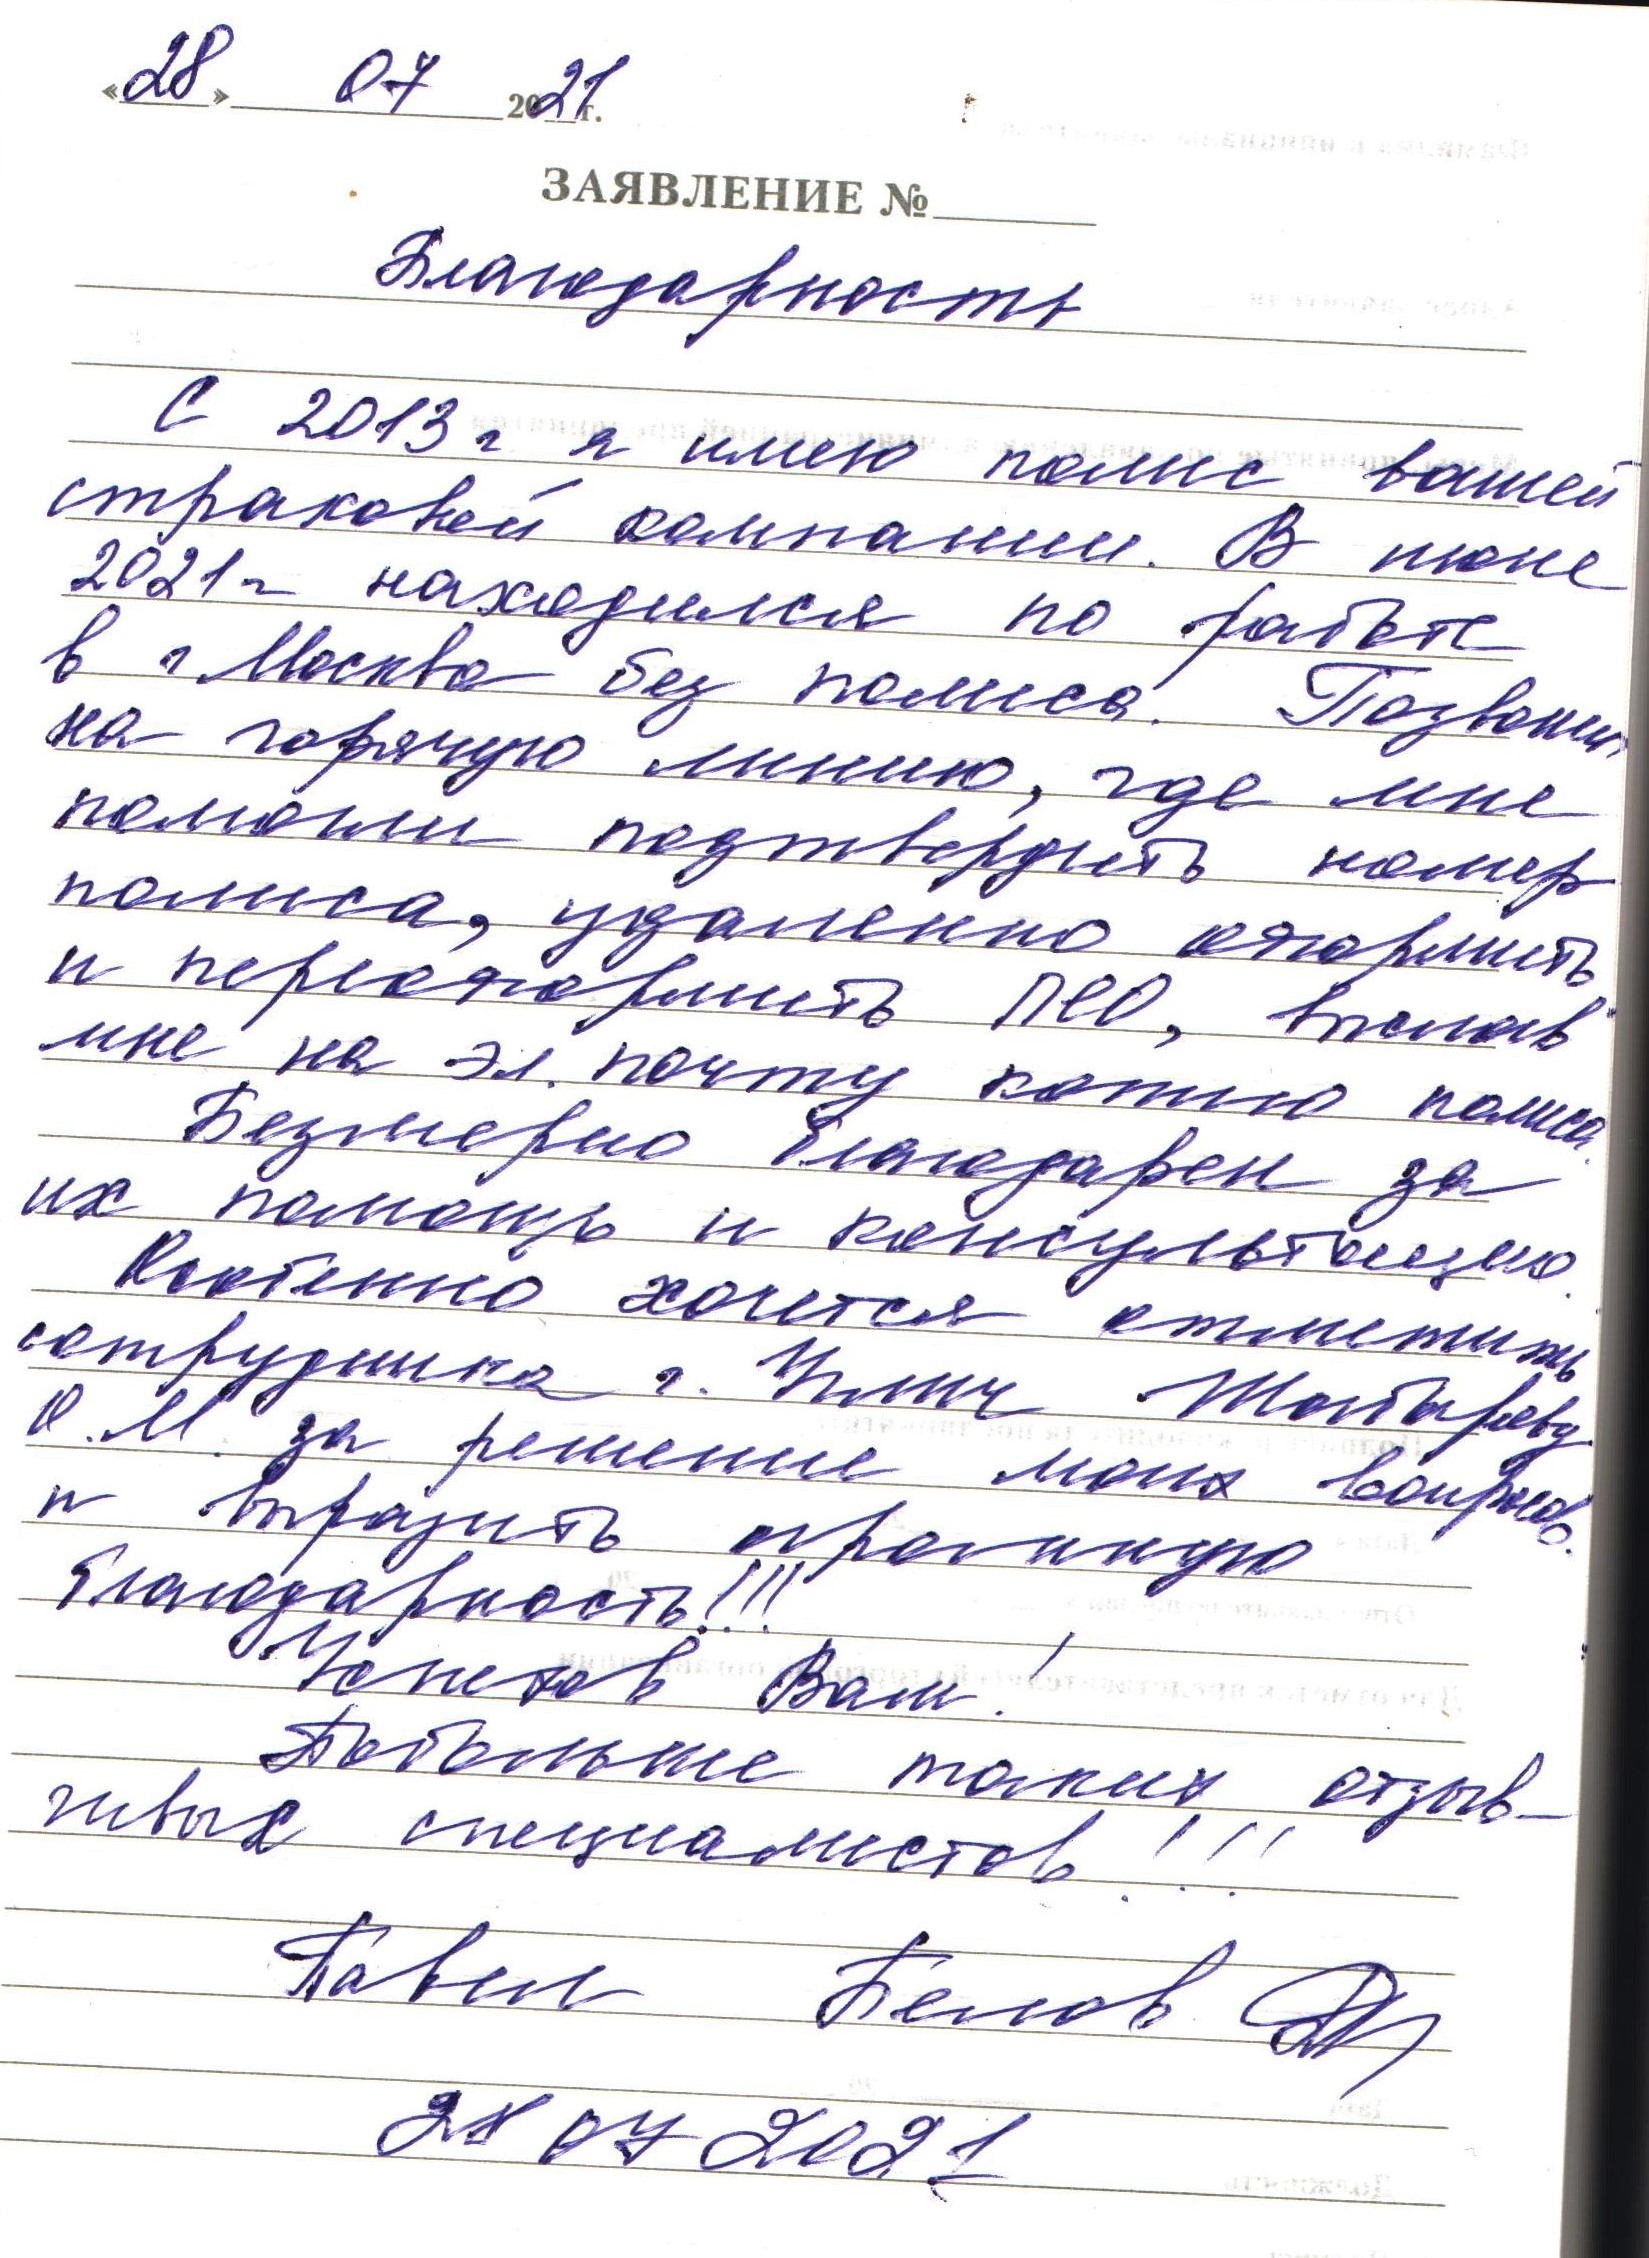 «28» 07 2021 г.
ЗАЯВЛЕНИЕ №
Благодарность
С 2013 г я имею полис вашей
страховой компании. В июне
2021 г находился по работе
в г Москва без полиса. Позвонил
на горячую линию, где мне
помогли подтвердить номер
полиса, удаленно оформить
и переоформить ПСО, выслав
мне на эл. почту копию полиса.
Безмерно благодарен за
их помощь и консультацию.
Особенно хочется отметить
сотрудника г. Углич Шабыреву
О.М. за решение моих вопросов
и выразить огромную
благодарность!!!
Успехов Вам!
Побольше таких отзыв-
чивых специалистов!!!
Павел Белов
28 07 2021